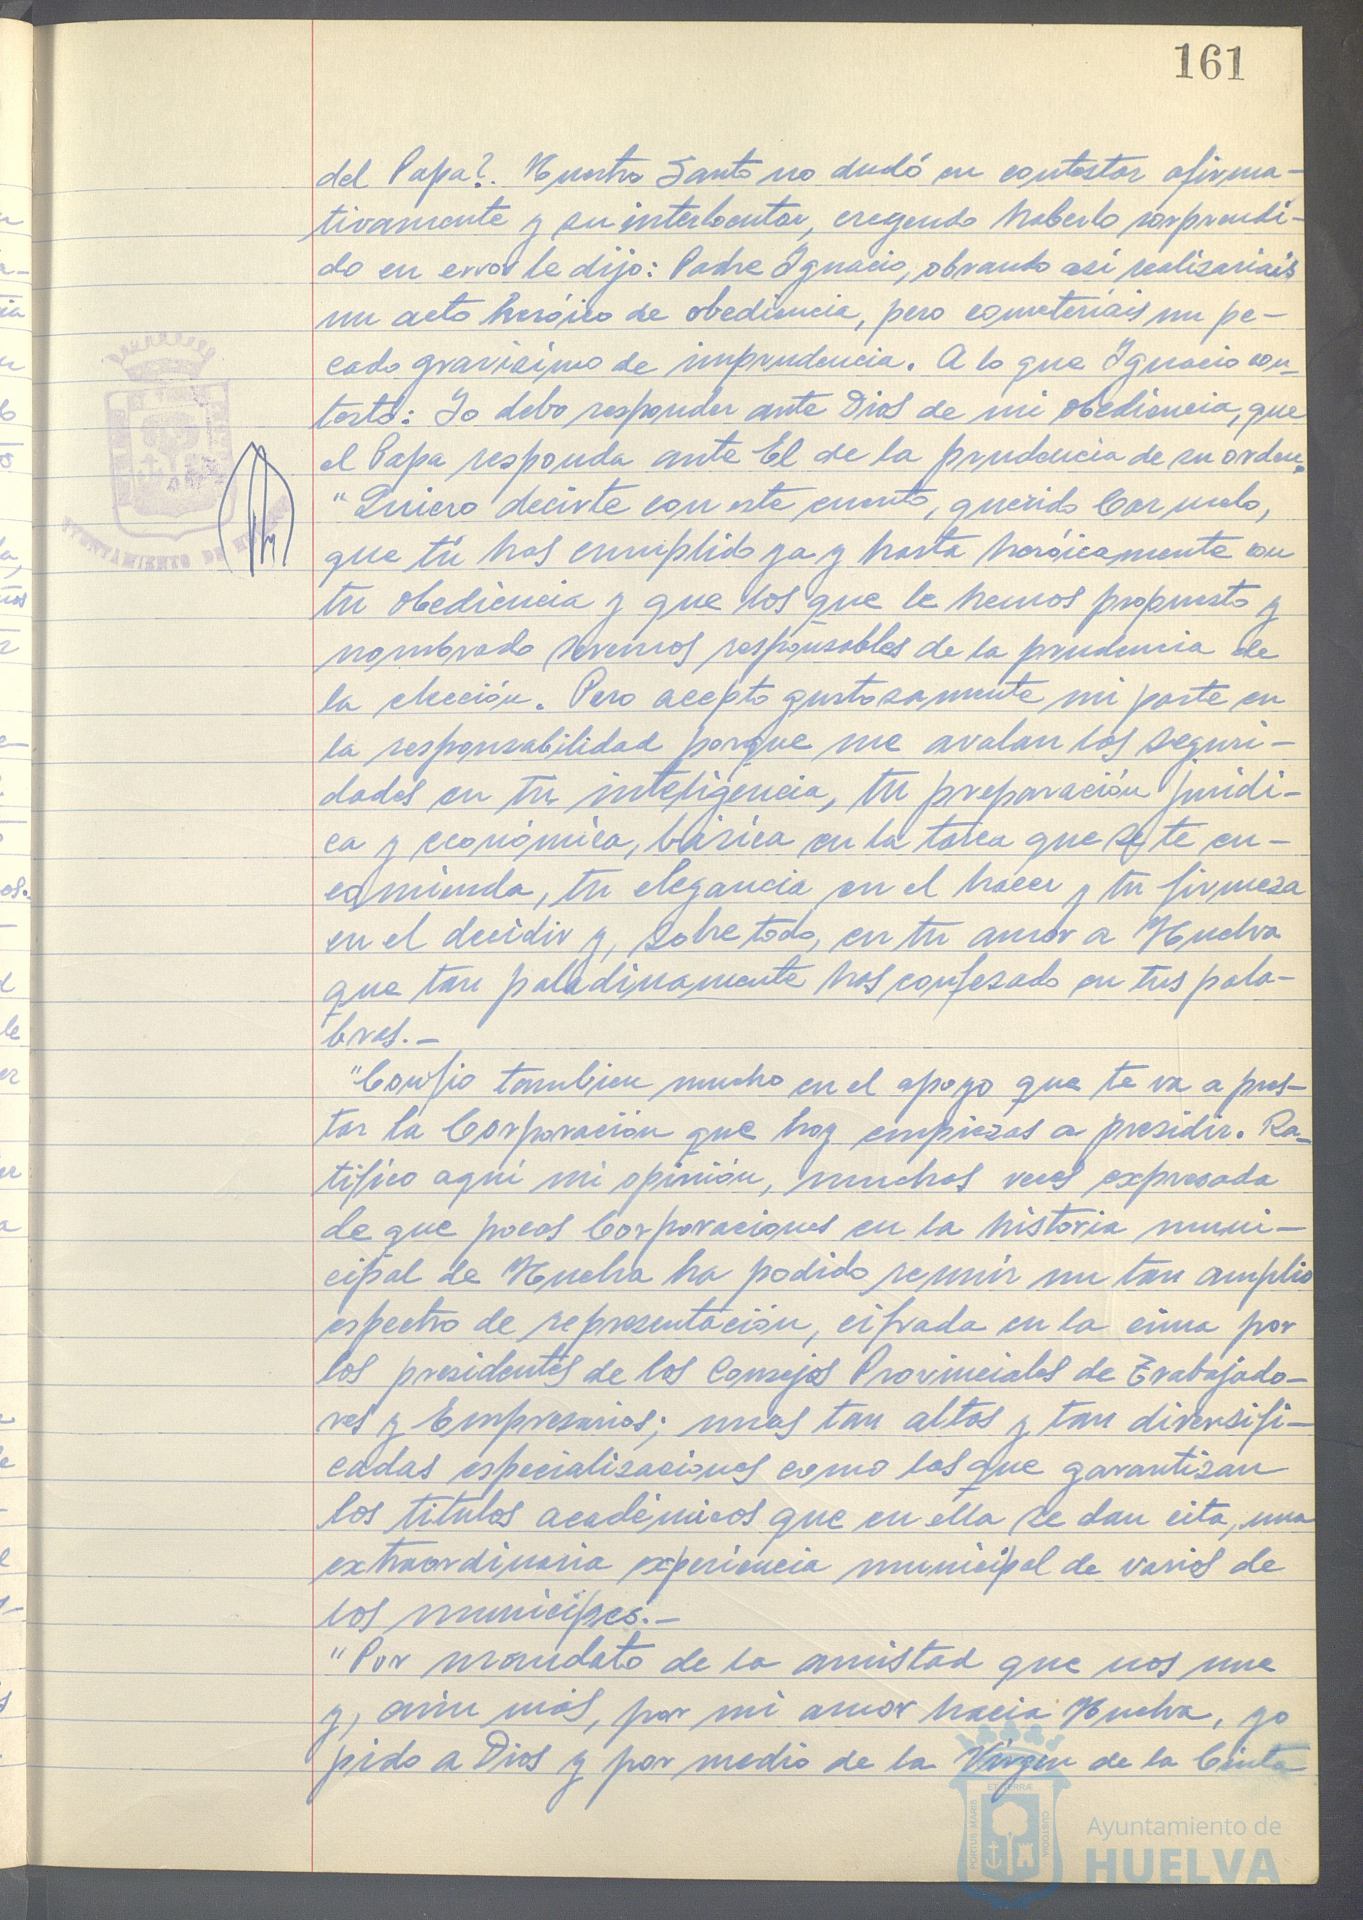 161
del Papa?. Nuestro Santo no dudó en contestar afirma-
tivamente y su interlocutor, creyendo haberlo sorprendi-
do en error le dijo: Padre Ignacio, obrando así realizariais
un acto heróico de obediencia, pero cometeriais un pe-
cado gravísimo de imprudencia. A lo que Ignacio con-
testó: Yo debo responder ante Dios de mi obediencia, que
el Papa responda ante El de la prudencia de su orden.
"Quiero decirte con este cuento, querido Carmelo,
que tú has cumplido ya y hasta heróicamente con
tu obediencia y que los que le hemos propuesto y
nombrado seremos responsables de la prudencia de
la elección. Pero acepto gustosamente mi parte en
la responsabilidad porque me avalan las seguri-
dades en tu inteligencia, tu preparación jurídi-
ca y económica, básica en la tarea que se te en-
comienda, tu elegancia en el hacer y tu firmeza
en el decidir y, sobre todo, en tu amor a Huelva
que tan paladinamente has confesado en tus pala-
bras.-
"Confío tambien mucho en el apoyo que te va a pres-
tar la Corporación que hoy empiezas a presidir. Ra-
tifico aquí mi opinión, muchas veces expresada
de que pocas Corporaciones en la historia muni-
cipal de Huelva ha podido reunir un tan amplio
espectro de representación, cifrada en la cima por
los presidentes de los Consejos Provinciales de Trabajado-
res y Empresarios; unas tan altas y tan diversifi-
cadas especializaciones como las que garantizan
los títulos académicos que en ella se dan cita, una
extraordinaria experiencia municipal de varios de
los munícipes.-
"Por mandato de la amistad que nos une
y, aún más, por mi amor hacia Huelva, yo
pido a Dios y por medio de la Virgen de la Cinta
AYUNTAMIENTO DE HUELVA
PORTUS MARIS
ET TERRÆ
CUSTODIA
Ayuntamiento de
HUELVA